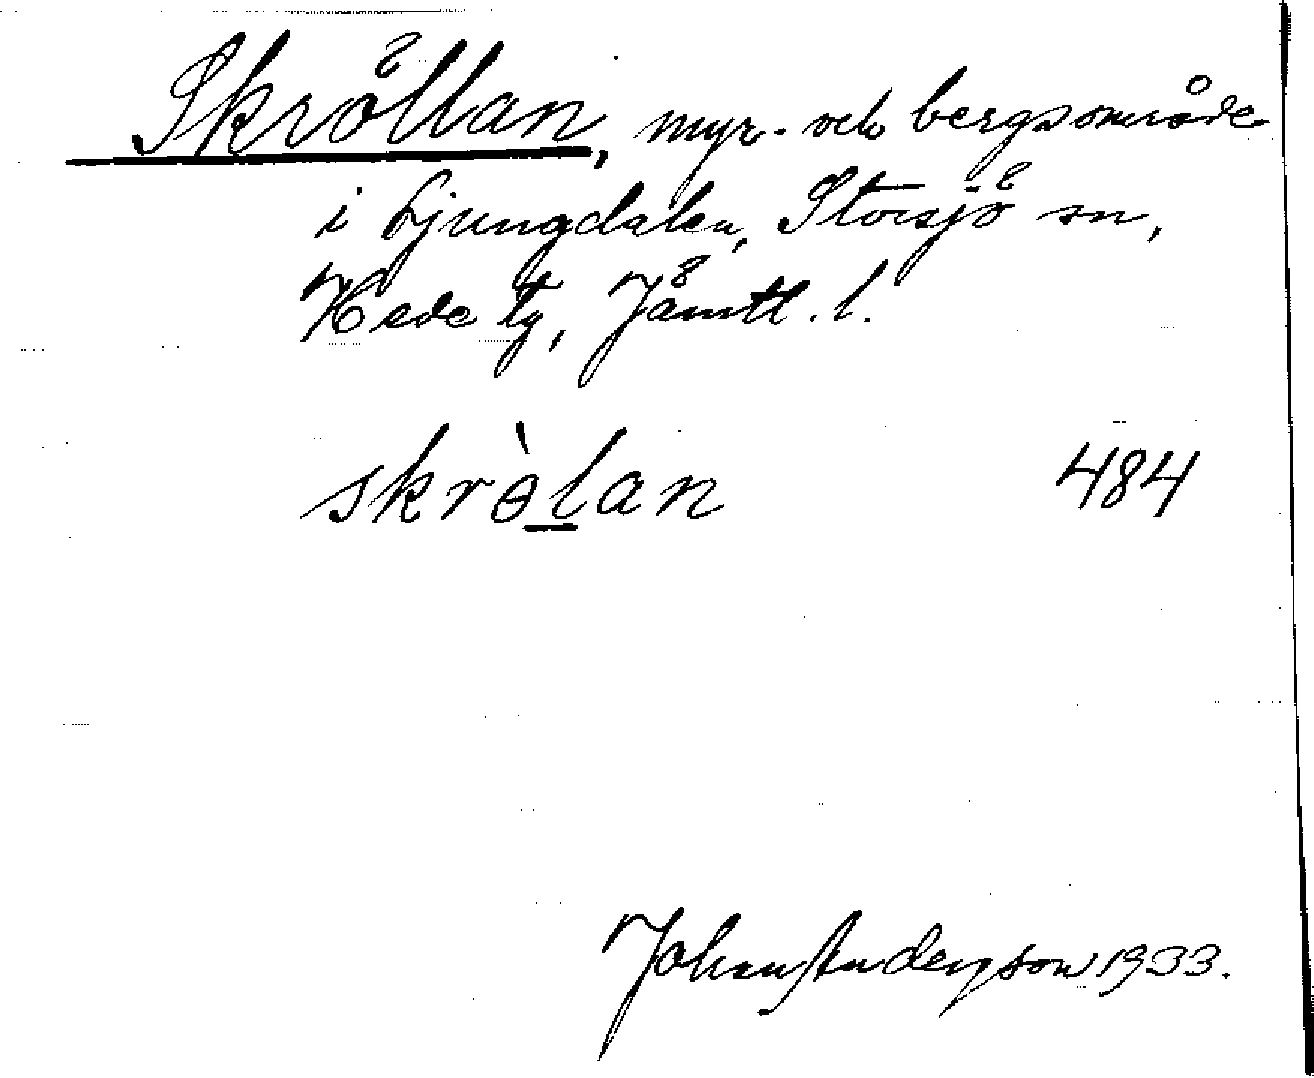 Skröllan, myr- och bergsområde
i Ljungdalen, Storsjö sn,
Hede tg, Jämtl. l.
skrɵ̀lan 484
Johan Anderson 1933.